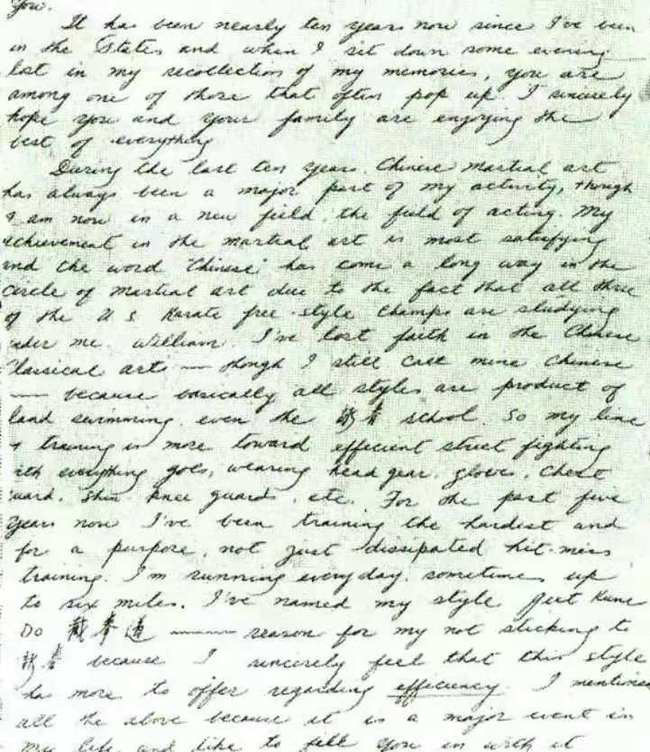 You.
It has been nearly ten years now since I've been
in the States and when I sit down some evening
lost in my recollection of my memories, you are
among one of those that often pop up. I sincerely
hope you and your family are enjoying the
best of everything
During the last ten years, Chinese martial art
has always been a major part of my activity, though
I am now in a new field, the field of acting. My
achievement in the martial art is most satisfying
and the word 'Chinese' has come a long way in the
circle of martial art due to the fact that all three
of the U.S. Karate free-style champs are studying
under me. William, I've lost faith in the Chinese
Classical arts — though I still call mine Chinese
— because basically all styles are product of
land swimming, even the 詠春 school. So my line
of training is more toward efficient street fighting
with everything goes, wearing head gear, gloves, chest
guard, shin knee guards, etc. For the past five
years now I've been training the hardest and
for a purpose, not just dissipated hit-miss
training. I'm running everyday, sometimes up
to six miles. I've named my style Jeet Kune
Do 截拳道 —— reason for my not sticking to
詠春 because I sincerely feel that this style
has more to offer regarding efficiency. I mentioned
all the above because it is a major event in
my life and like to fill you in with it